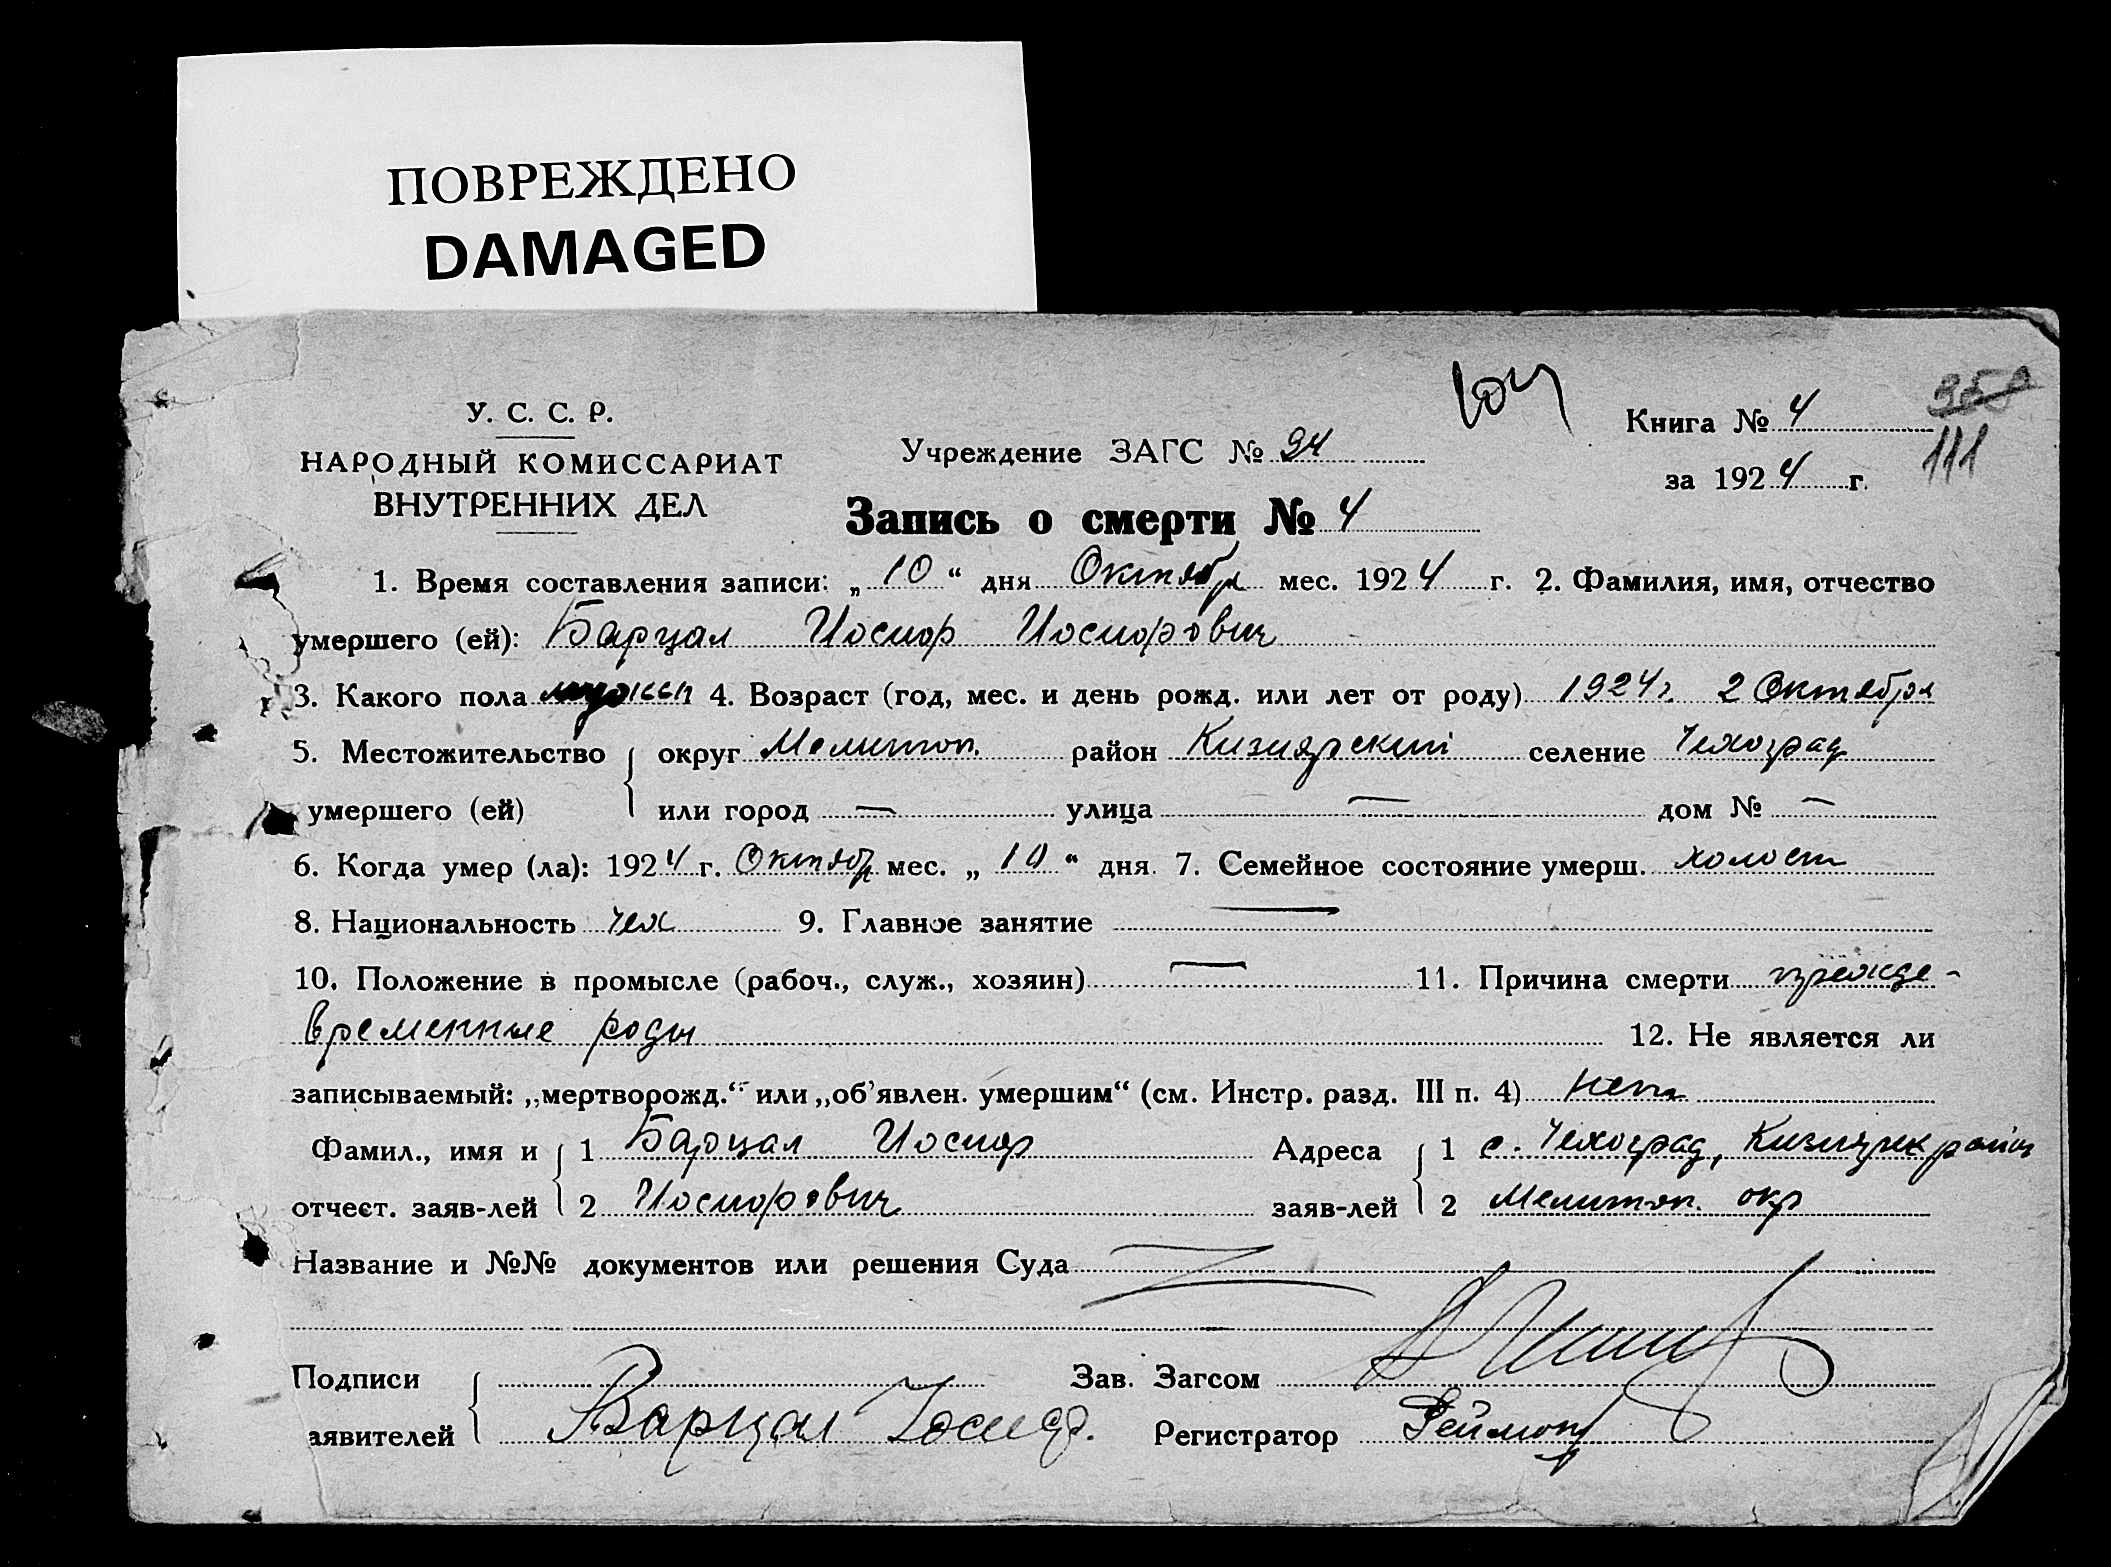 ПОВРЕЖДЕНО
DAMAGED
У. С. С. Р.
НАРОДНЫЙ КОМИССАРИАТ
ВНУТРЕННИХ ДЕЛ
Учреждение ЗАГС № 94
Книга № 4
350
111
за 1924 г.
Запись о смерти № 4
1. Время составления записи: „10“ дня Октябр мес. 1924 г. 2. Фамилия, имя, отчество
умершего (ей): Барцал Иосиф Иосифович
3. Какого пола мужск 4. Возраст (год, мес. и день рожд. или лет от роду) 1924 г. 2 Октября
5. Местожительство округ Мелитоп. район Кизиярский селение Чехоград
умершего (ей) или город — улица — дом № —
6. Когда умер (ла): 1924 г. Октябр мес. „10“ дня. 7. Семейное состояние умерш. холост
8. Национальность чех 9. Главное занятие —
10. Положение в промысле (рабоч., служ., хозяин) — 11. Причина смерти прежде-
временные роды 12. Не является ли
записываемый: „мертворожд.“ или „об’явлен. умершим“ (см. Инстр. разд. III п. 4) нет
Фамил., имя и 1 Барцал Иосиф Адреса 1 с. Чехоград, Кизиярск район
отчест. заяв-лей 2 Иосифович заяв-лей 2 Мелитоп. окр
Название и №№ документов или решения Суда
Подписи Зав. Загсом
аявителей Барцал Иосиф. Регистратор